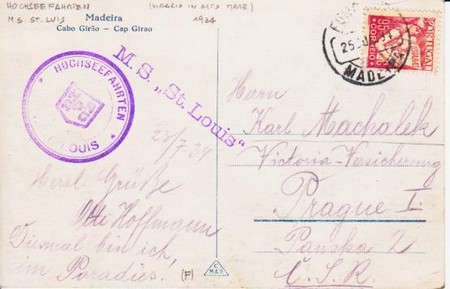 HOCHSEEFAHRTEN (VIAGGIO IN ALTO MARE)
M.S. ST. LUIS 1934
Madeira
Cabo Girão – Cap Girao
M.S. „St. Louis"
HOCHSEEFAHRTEN
LOUIS
25
MADEIRA
PORTUGAL
CORREIO
95
Herrn
Karl Machalek
Victoria-Versicherung
Prague I.
Panska 2
Č.S.R.
25/7 34
Herzl Grüße
Otti Hoffmann
Diesmal bin ich
im Paradies!
(F)